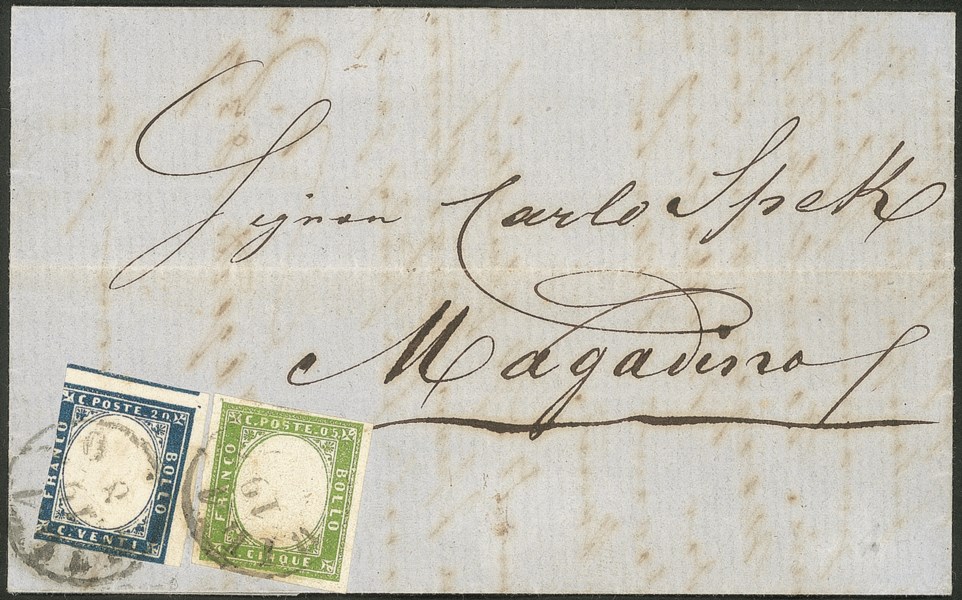 Signor Carlo Spek
Magadino
C. POSTE. 20.
FRANCO
BOLLO
C. VENTI
C. POSTE. 05.
FRANCO
BOLLO
C. CINQUE
19